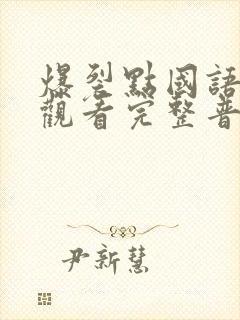 爆裂點國語
觀看完整普
尹新慧